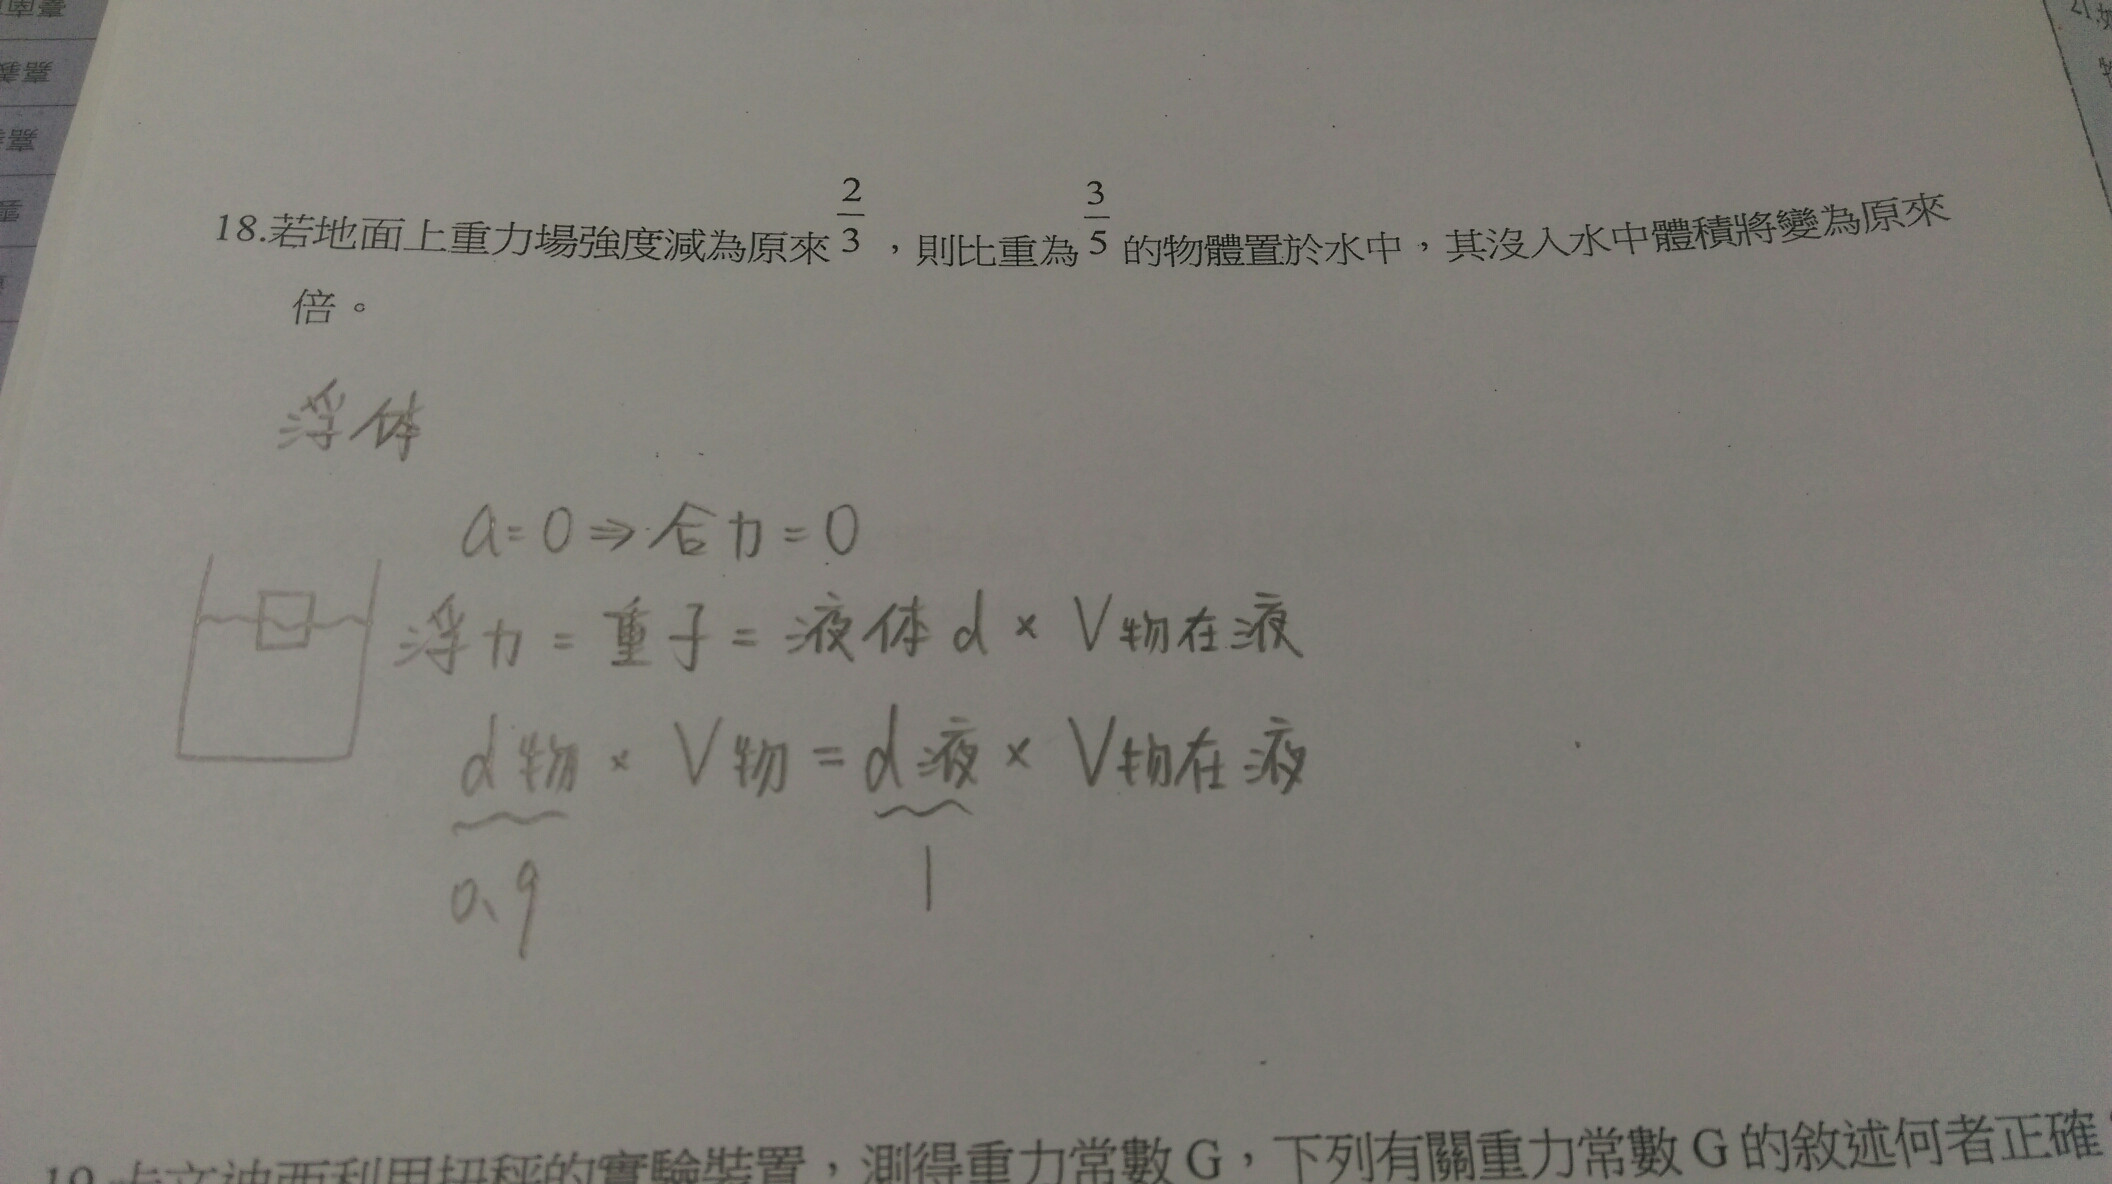 18.若地面上重力場強度減為原來 2/3 ，則比重為 3/5 的物體置於水中，其沒入水中體積將變為原來
倍。
浮体
a=0⇒合力=0
浮力=重子=液体d×V物在液
d物×V物=d液×V物在液
0.9 1
19.卡文迪西利用扭秤的實驗裝置，測得重力常數G，下列有關重力常數G的敘述何者正確